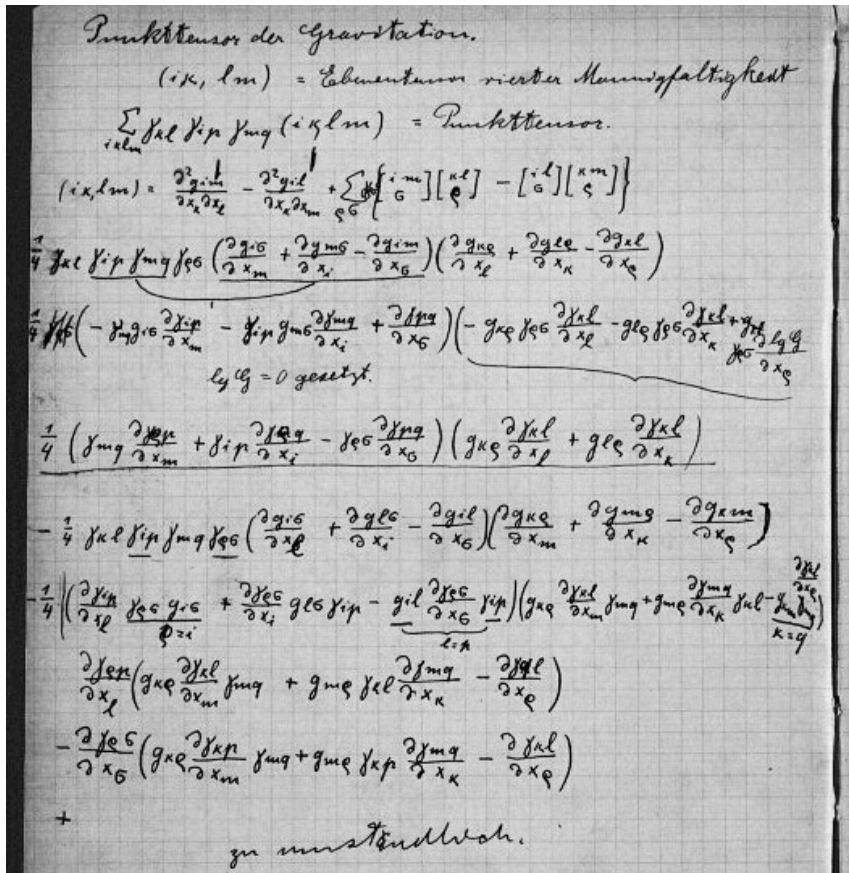 Punkttensor der Gravitation.
(iκ, lm) = Ebenentensor vierter Mannigfaltigkeit
∑_{iκlm} γ_{κl} γ_{ip} γ_{mq} (iκlm) = Punkttensor.
(iκ,lm) = ∂²g_{im}/∂x_κ∂x_l − ∂²g_{il}/∂x_κ∂x_m + ∑_{ρσ} {[i m σ][κ l ρ] − [i l σ][κ m ρ]}
1/4 γ_{κl} γ_{ip} γ_{mq} γ_{ρσ} (∂g_{iσ}/∂x_m + ∂g_{mσ}/∂x_i − ∂g_{im}/∂x_σ)(∂g_{κρ}/∂x_l + ∂g_{lρ}/∂x_κ − ∂g_{κl}/∂x_ρ)
1/4 (− γ_{mq} g_{iσ} ∂γ_{ip}/∂x_m − γ_{ip} g_{mσ} ∂γ_{mq}/∂x_i + ∂γ_{pq}/∂x_σ)(− g_{κρ} γ_{ρσ} ∂γ_{κl}/∂x_l − g_{lρ} γ_{ρσ} ∂γ_{κl}/∂x_κ + γ_{ρσ} ∂lg G/∂x_ρ
lg G = 0 gesetzt.
1/4 (γ_{mq} ∂γ_{ρp}/∂x_m + γ_{ip} ∂γ_{ρq}/∂x_i − γ_{ρσ} ∂γ_{pq}/∂x_σ)(g_{κρ} ∂γ_{κl}/∂x_l + g_{lρ} ∂γ_{κl}/∂x_κ)
− 1/4 γ_{κl} γ_{ip} γ_{mq} γ_{ρσ} (∂g_{iσ}/∂x_l + ∂g_{lσ}/∂x_i − ∂g_{il}/∂x_σ)(∂g_{κρ}/∂x_m + ∂g_{mρ}/∂x_κ − ∂g_{κm}/∂x_ρ)
− 1/4 (∂γ_{ip}/∂x_l γ_{ρσ} g_{iσ} + ∂γ_{ρσ}/∂x_i g_{lσ} γ_{ip} − g_{il} ∂γ_{ρσ}/∂x_σ γ_{ip})(g_{κρ} ∂γ_{κl}/∂x_m γ_{mq} + g_{mρ} ∂γ_{mq}/∂x_κ γ_{κl} − g_{κm} γ_{mq} ∂γ_{κl}/∂x_ρ)
ρ=i l=p κ=q
∂γ_{ρp}/∂x_l (g_{κρ} ∂γ_{κl}/∂x_m γ_{mq} + g_{mρ} γ_{κl} ∂γ_{mq}/∂x_κ − ∂γ_{ql}/∂x_ρ)
− ∂γ_{ρσ}/∂x_σ (g_{κρ} ∂γ_{κp}/∂x_m γ_{mq} + g_{mρ} γ_{κp} ∂γ_{mq}/∂x_κ − ∂γ_{κl}/∂x_ρ)
+
zu umständlich.